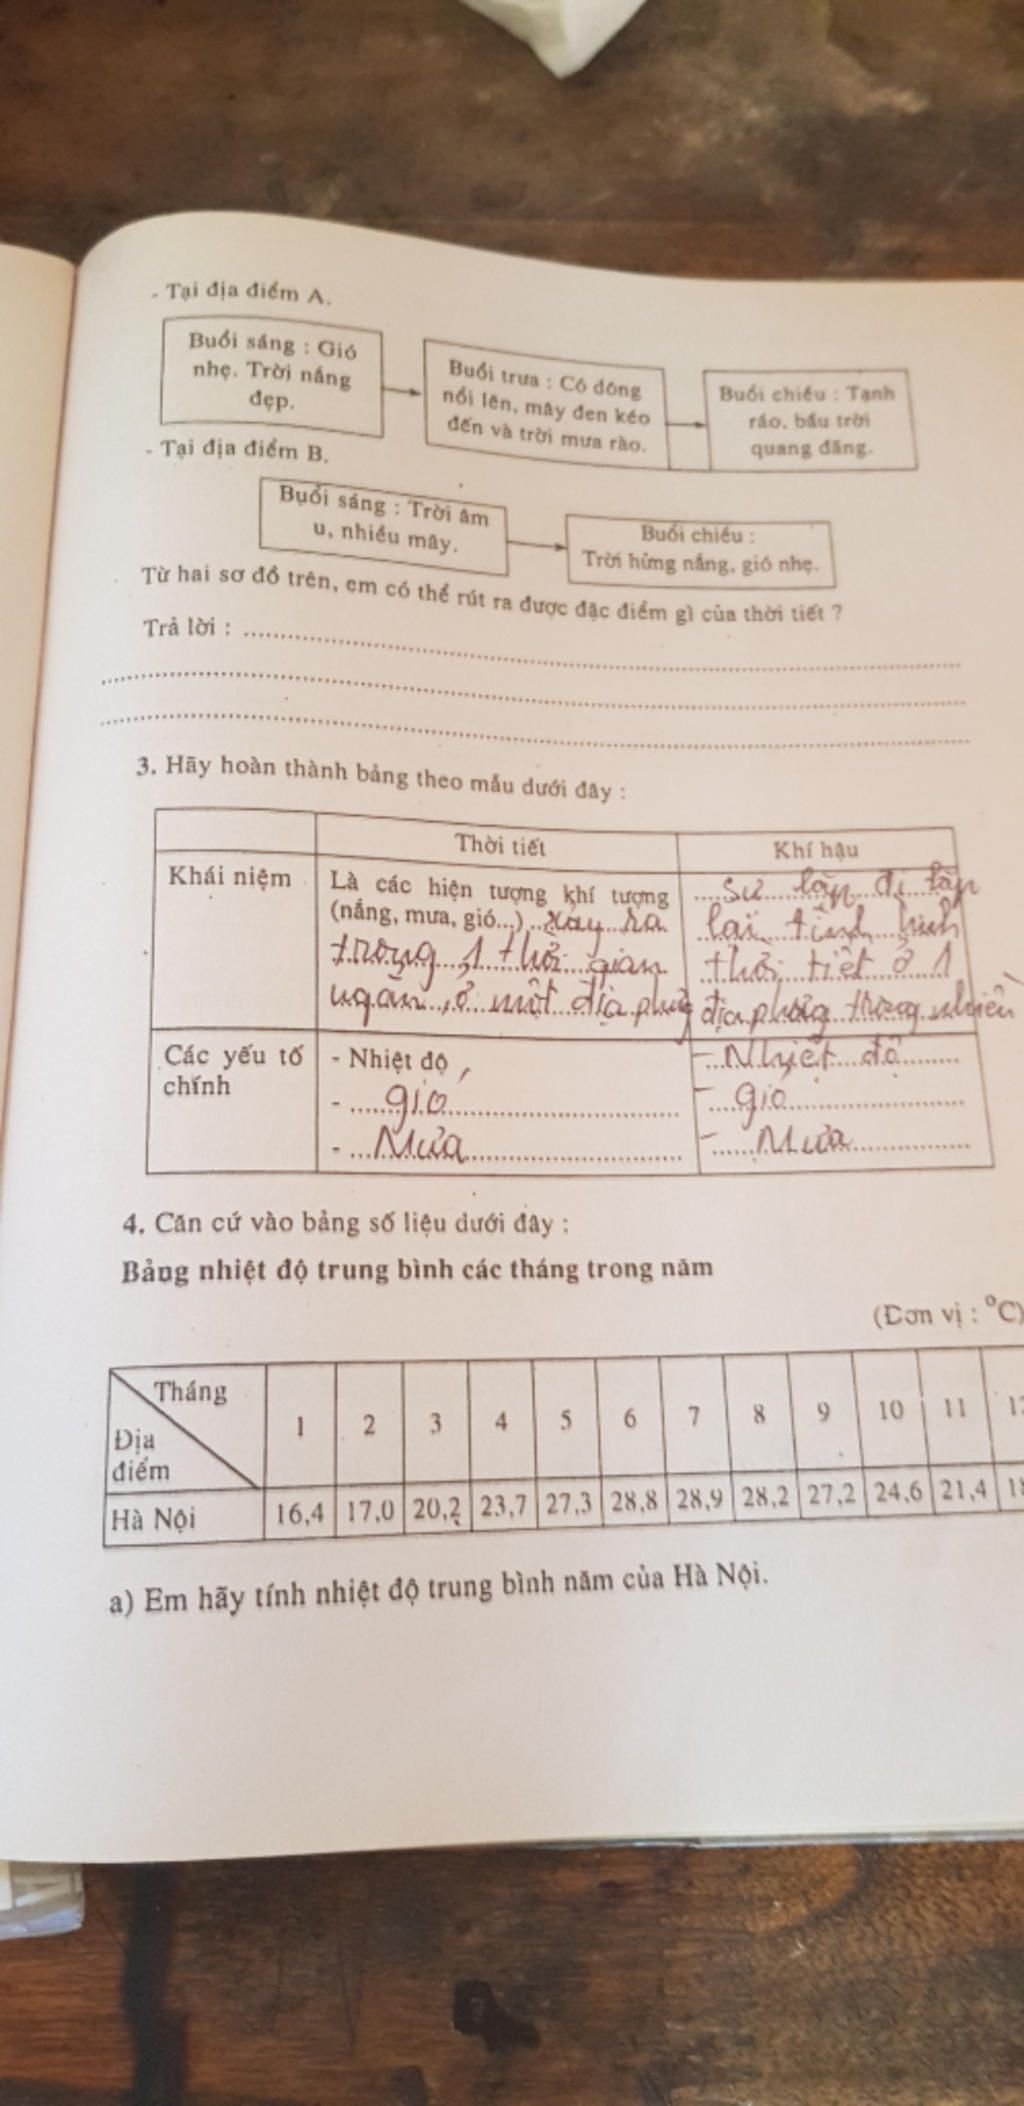 - Tại địa điểm A.
Buổi sáng : Gió
nhẹ. Trời nắng
đẹp.
Buổi trưa : Có dông
nổi lên, mây đen kéo
đến và trời mưa rào.
Buổi chiều : Tạnh
ráo, bầu trời
quang đãng.
- Tại địa điểm B.
Buổi sáng : Trời âm
u, nhiều mây.
Buổi chiều :
Trời hửng nắng, gió nhẹ.
Từ hai sơ đồ trên, em có thể rút ra được đặc điểm gì của thời tiết ?
Trả lời :
3. Hãy hoàn thành bảng theo mẫu dưới đây :
Thời tiết
Khí hậu
Khái niệm
Là các hiện tượng khí tượng
(nắng, mưa, gió...) xảy ra
trong 1 thời gian
ngắn, ở một địa phương
sự lặp đi lặp
lại tình hình
thời tiết ở 1
địa phương trong nhiều
Các yếu tố
chính
- Nhiệt độ
- gió
- Mưa
- Nhiệt độ
- gió
- Mưa
4. Căn cứ vào bảng số liệu dưới đây :
Bảng nhiệt độ trung bình các tháng trong năm
(Đơn vị : °C)
Tháng
Địa
điểm
1 2 3 4 5 6 7 8 9 10 11
Hà Nội 16,4 17,0 20,2 23,7 27,3 28,8 28,9 28,2 27,2 24,6 21,4
a) Em hãy tính nhiệt độ trung bình năm của Hà Nội.